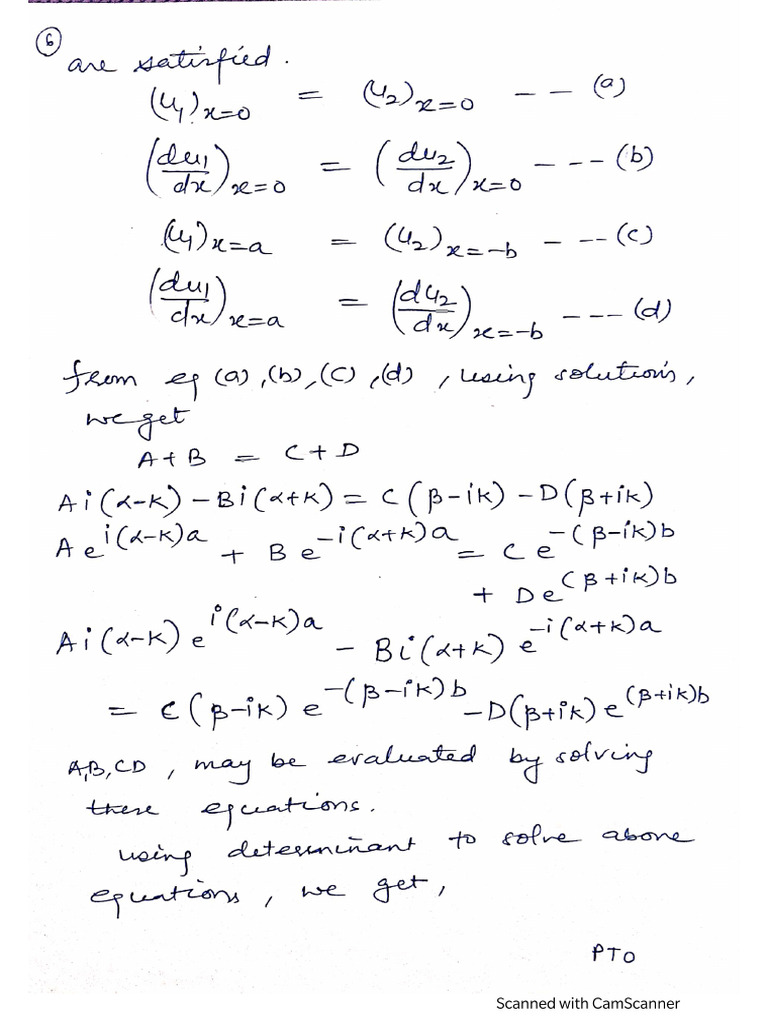 6
are satisfied.
(u₁)ₓ₌₀ = (u₂)ₓ₌₀ -- (a)
(du₁/dx)ₓ₌₀ = (du₂/dx)ₓ₌₀ --- (b)
(u₁)ₓ₌ₐ = (u₂)ₓ₌₋b - -- (c)
(du₁/dx)ₓ₌ₐ = (du₂/dx)ₓ₌₋b --- (d)
from eq (a), (b), (c), (d), using solutions,
we get
A+B = C+D
Ai(α-K) - Bi(α+K) = C(β-iK) - D(β+iK)
A e^{i(α-K)a} + B e^{-i(α+K)a} = C e^{-(β-iK)b}
+ D e^{(β+iK)b}
Ai(α-K) e^{i(α-K)a} - Bi(α+K) e^{-i(α+K)a}
= C(β-iK) e^{-(β-iK)b} - D(β+iK) e^{(β+iK)b}
A,B,CD, may be evaluated by solving
these equations.
using determinant to solve above
equations, we get,
PTO
Scanned with CamScanner